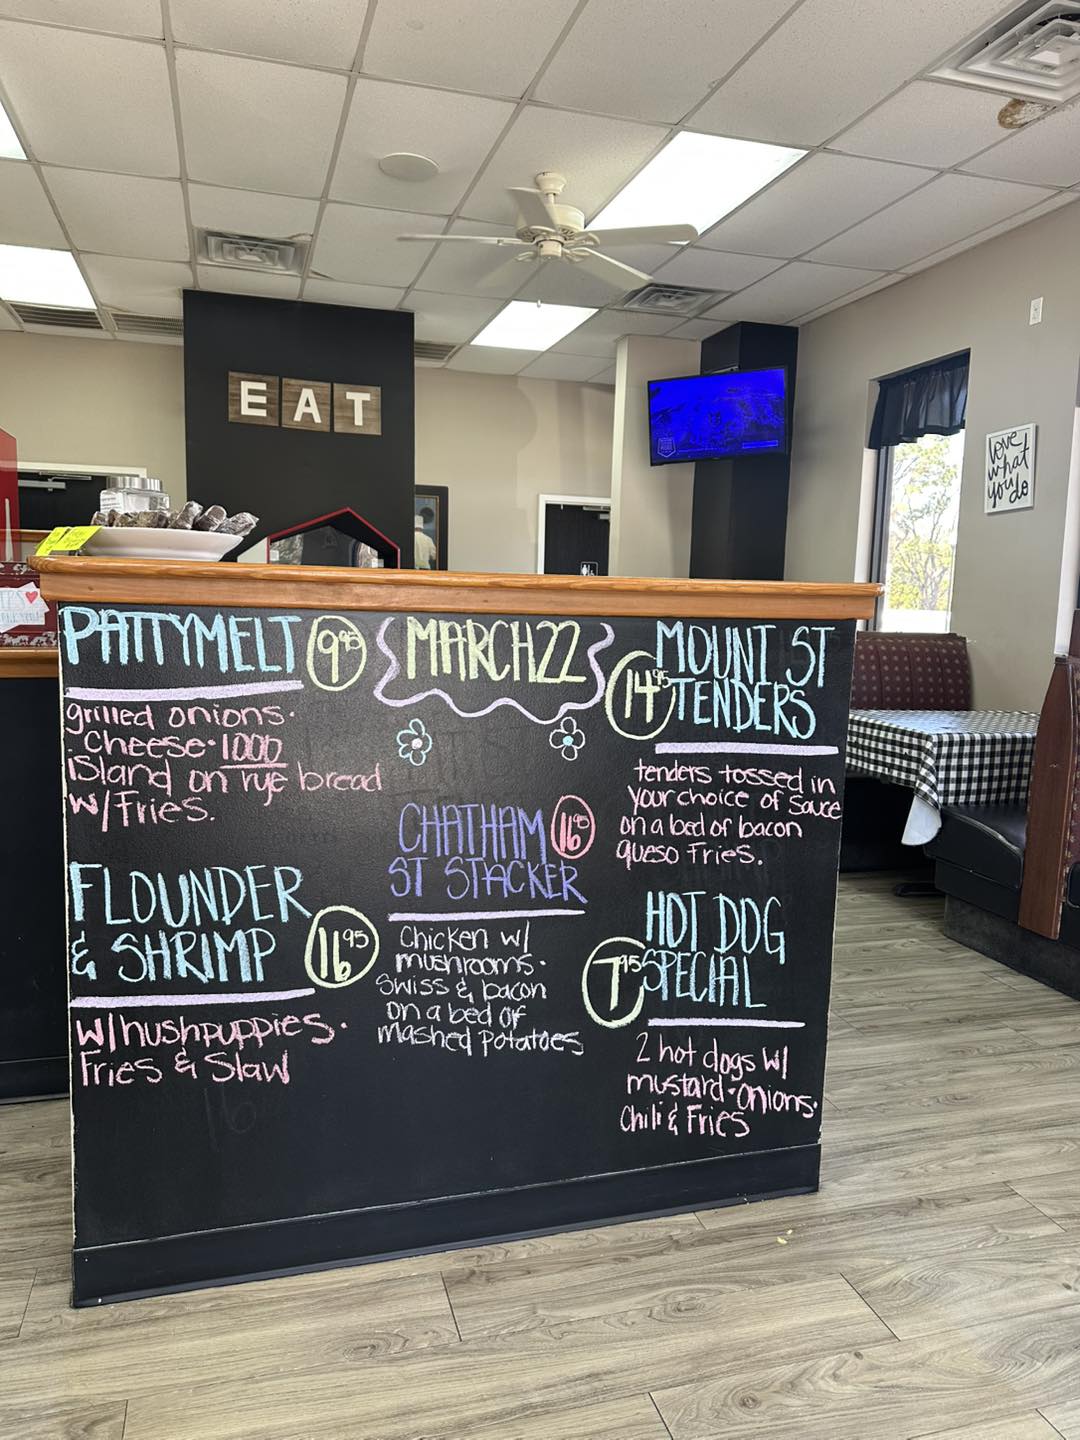 EAT
love
what
you do
PATTYMELT 9.95
grilled onions.
. Cheese . 1000
island on rye bread
w/ Fries.
FLOUNDER
& SHRIMP 16.95
w/ hushpuppies.
Fries & Slaw
MARCH 22
CHATHAM 16.95
ST STACKER
Chicken w/
mushrooms.
Swiss & bacon
on a bed of
mashed potatoes
MOUNT ST
14.95 TENDERS
tenders tossed in
your choice of sauce
on a bed of bacon
queso Fries.
HOT DOG
7.95 SPECIAL
2 hot dogs w/
mustard . onions.
Chili & Fries